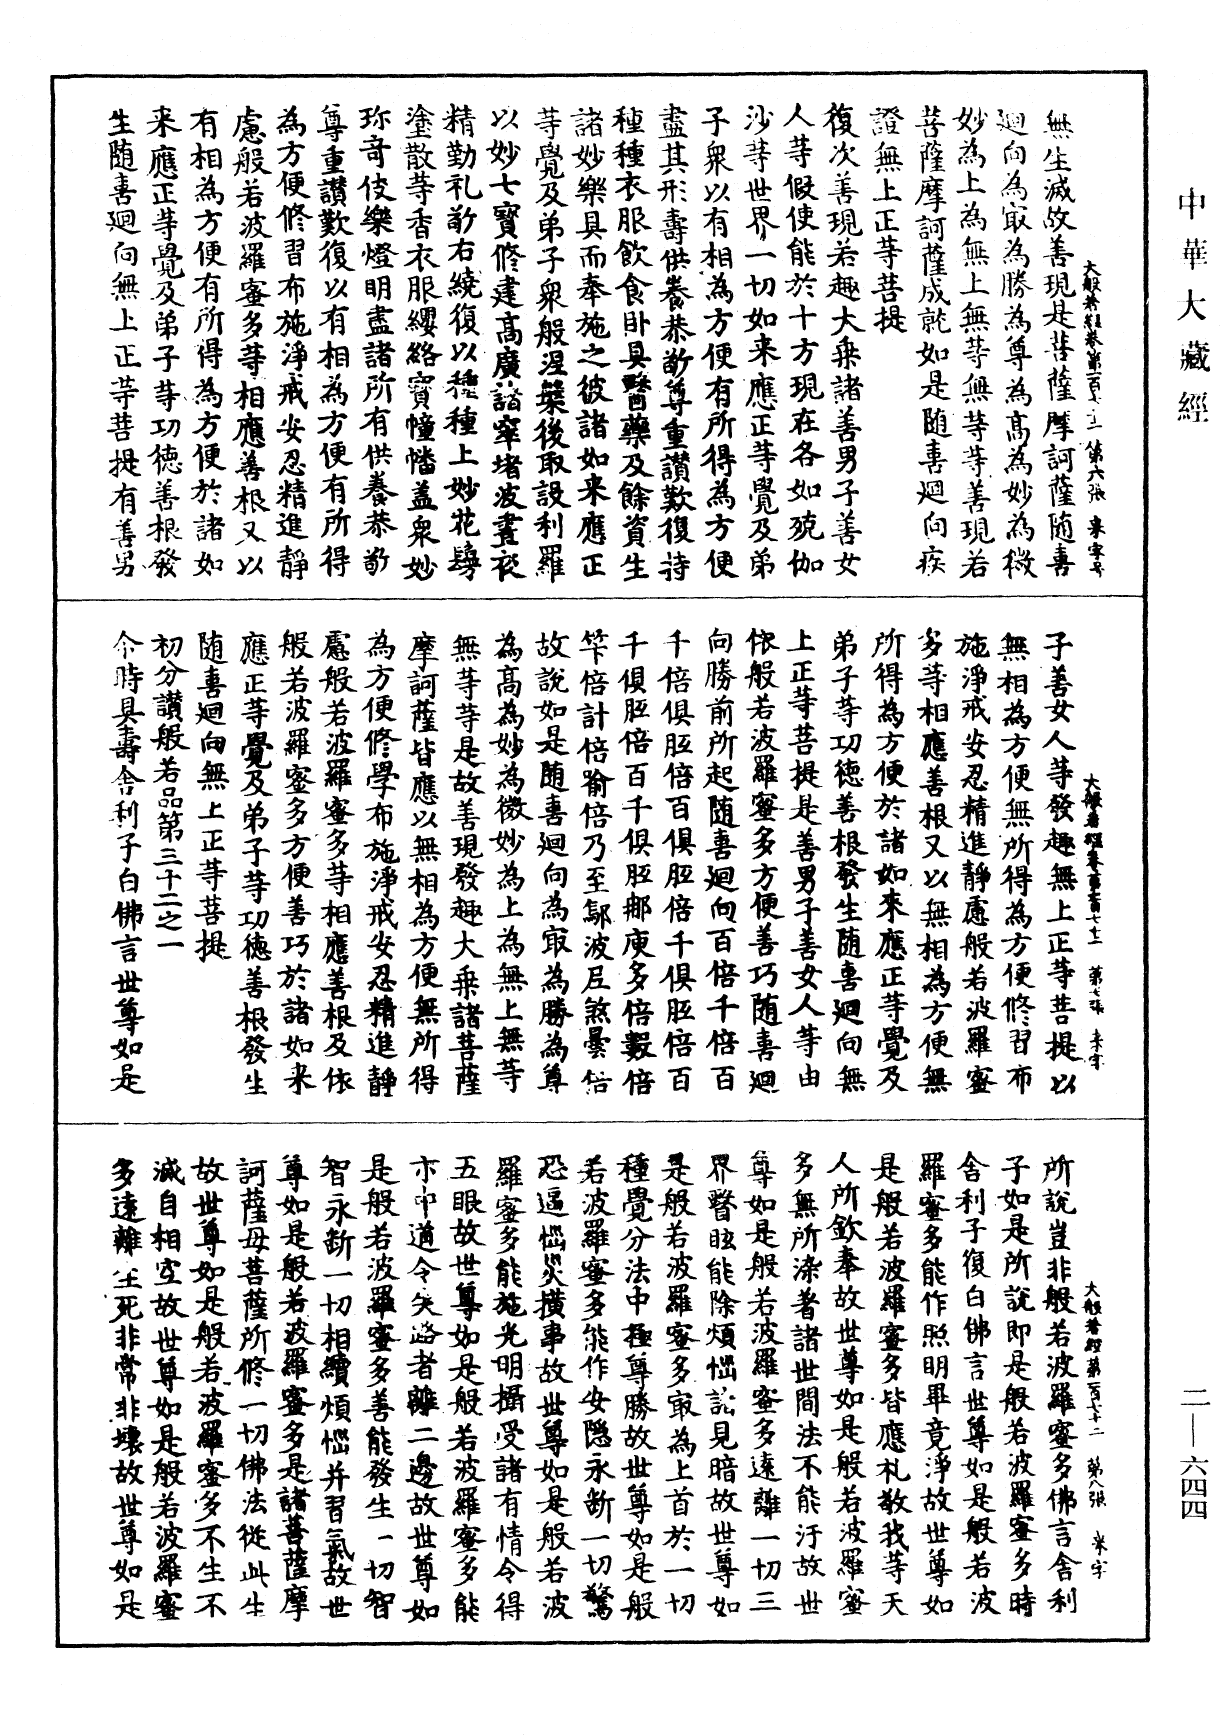 中華大藏經
大般若經卷第一百七十二 第六張 菜字号
無生滅故善現是菩薩摩訶薩隨喜
迴向為冣為勝為尊為髙為妙為微
妙為上為無上無等無等等善現若
菩薩摩訶薩成就如是隨喜迴向疾
證無上正等菩提
復次善現若趣大乗諸善男子善女
人等假使能於十方現在各如殑伽
沙等世界一切如来應正等覺及弟
子衆以有相為方便有所得為方便
盡其形壽供養恭敬尊重讃歎復持
種種衣服飲食卧具醫藥及餘資生
諸妙樂具而奉施之彼諸如来應正
等覺及弟子衆般涅槃後取設利羅
以妙七寳修建髙廣諸窣堵波晝夜
精勤礼敬右繞復以種種上妙花鬘
塗散等香衣服纓絡寳幢幡盖衆妙
珎竒伎樂燈明盡諸所有供養恭敬
尊重讃歎復以有相為方便有所得
為方便修習布施淨戒安忍精進靜
慮般若波羅蜜多等相應善根又以
有相為方便有所得為方便於諸如
来應正等覺及弟子等功德善根發
生随喜迴向無上正等菩提有善男
大般若經卷第一百七十二 第七張 菜字
子善女人等發趣無上正等菩提以
無相為方便無所得為方便修習布
施淨戒安忍精進靜慮般若波羅蜜
多等相應善根又以無相為方便無
所得為方便於諸如來應正等覺及
弟子等功德善根發生随喜迴向無
上正等菩提是善男子善女人等由
依般若波羅蜜多方便善巧随喜迴
向勝前所起随喜迴向百倍千倍百
千倍俱胝倍百俱胝倍千俱胝倍百
千俱胝倍百千俱胝那庾多倍數倍
筭倍計倍喻倍乃至鄔波尼煞曇倍
故說如是随喜迴向為冣為勝為尊
為髙為妙為微妙為上為無上無等
無等等是故善現發趣大乗諸菩薩
摩訶薩皆應以無相為方便無所得
為方便修學布施淨戒安忍精進靜
慮般若波羅蜜多等相應善根及依
般若波羅蜜多方便善巧於諸如来
應正等覺及弟子等功德善根發生
随喜迴向無上正等菩提
初分讃般若品第三十二之一
尒時具壽舍利子白佛言世尊如是
大般若經第一百七十二 第八張 菜字
所說豈非般若波羅蜜多佛言舍利
子如是所說即是般若波羅蜜多時
舍利子復白佛言世尊如是般若波
羅蜜多能作照明畢竟淨故世尊如
是般若波羅蜜多皆應礼敬我等天
人所欽奉故世尊如是般若波羅蜜
多無所染著諸世間法不能汙故世
尊如是般若波羅蜜多遠離一切三
界翳眩能除煩惱諸見暗故世尊如
是般若波羅蜜多冣為上首於一切
種覺分法中極尊勝故世尊如是般
若波羅蜜多能作安隱永斷一切驚
恐逼惱災橫事故世尊如是般若波
羅蜜多能施光明攝受諸有情令得
五眼故世尊如是般若波羅蜜多能
示中道令失路者離二邊故世尊如
是般若波羅蜜多善能發生一切智
智永斷一切相續煩惱并習氣故世
尊如是般若波羅蜜多是諸菩薩摩
訶薩母菩薩所修一切佛法從此生
故世尊如是般若波羅蜜多不生不
滅自相空故世尊如是般若波羅蜜
多遠離生死非常非壞故世尊如是
二—六四四